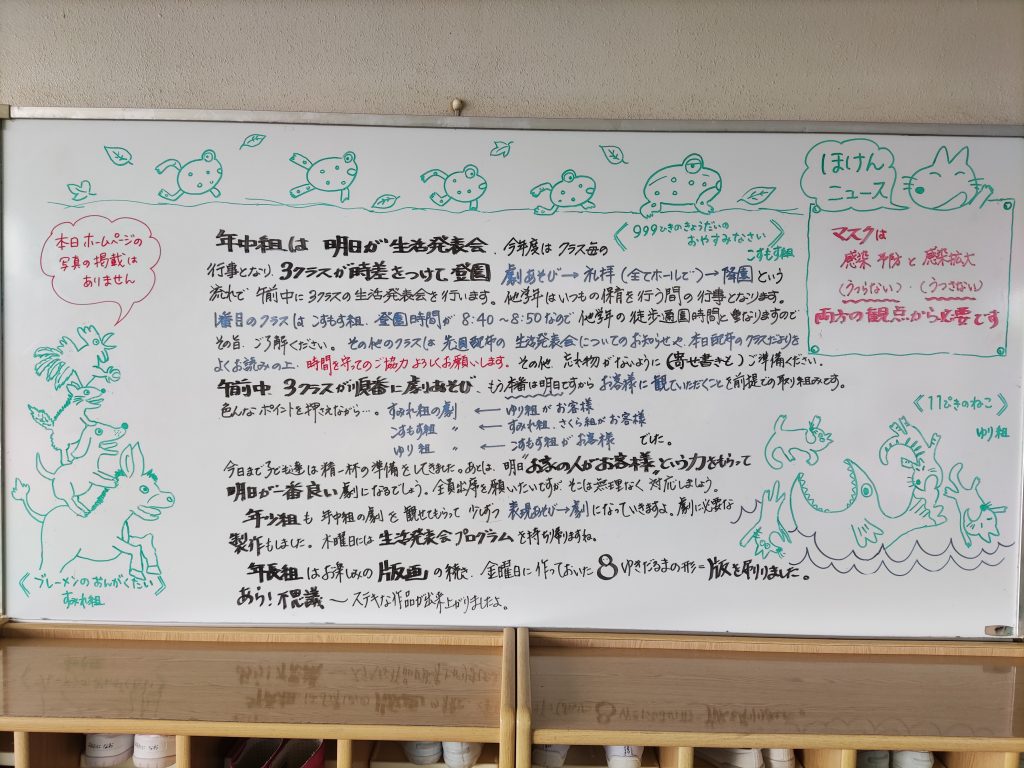 本日ホームページの
写真の掲載は
ありません
《999ひきのきょうだいの
おやすみなさい》
こすもす組
ほけん
ニュース
マスクは
感染予防と感染拡大
(うつらない)・(うつさない)
両方の観点から必要です
年中組は 明日が生活発表会。今年度はクラス毎の
行事となり、3クラスが時差をつけて登園 劇あそび→礼拝(全てホールで)→降園という
流れで午前中に3クラスの生活発表会を行います。他学年はいつもの保育を行う間の行事となります。
1番目のクラスはこすもす組。登園時間が8:40~8:50なので他学年の徒歩通園時間と重なりますので
その旨、ご了解ください。その他のクラスは先週配布の生活発表会についてのお知らせや、本日配布のクラスだより
よくお読みの上、時間を守ってのご協力よろしくお願いします。その他、忘れ物がないように(寄せ書きも)ご準備ください。
午前中、3クラスが順番に劇あそび。もう本番は明日ですからお客様に観ていただくことを前提での取り組みです。
色んなポイントを押さえながら…。すみれ組の劇 ← ゆり組がお客様
こすもす組 〃 ← すみれ組、さくら組がお客様
ゆり組 〃 ← こすもす組がお客様 でした。
今日まで子ども達は精一杯の準備をしてきました。あとは、明日"お家の人がお客様"という力をもらって
明日が一番良い劇になるでしょう。全員出席を願いたいですが、そこは無理なく対応しましょう。
年少組も年中組の劇を観せてもらって少しずつ表現あそび→劇になっていきますよ。劇に必要な
製作もしました。木曜日には生活発表会プログラムを持ち帰りますね。
年長組はお楽しみの"版画"の続き。金曜日に作っておいた8ゆきだるまの形=版を刷りました。
あら!不思議〜ステキな作品が出来上がりましたよ。
《ブレーメンのおんがくたい》
すみれ組
《11ぴきのねこ》
ゆり組